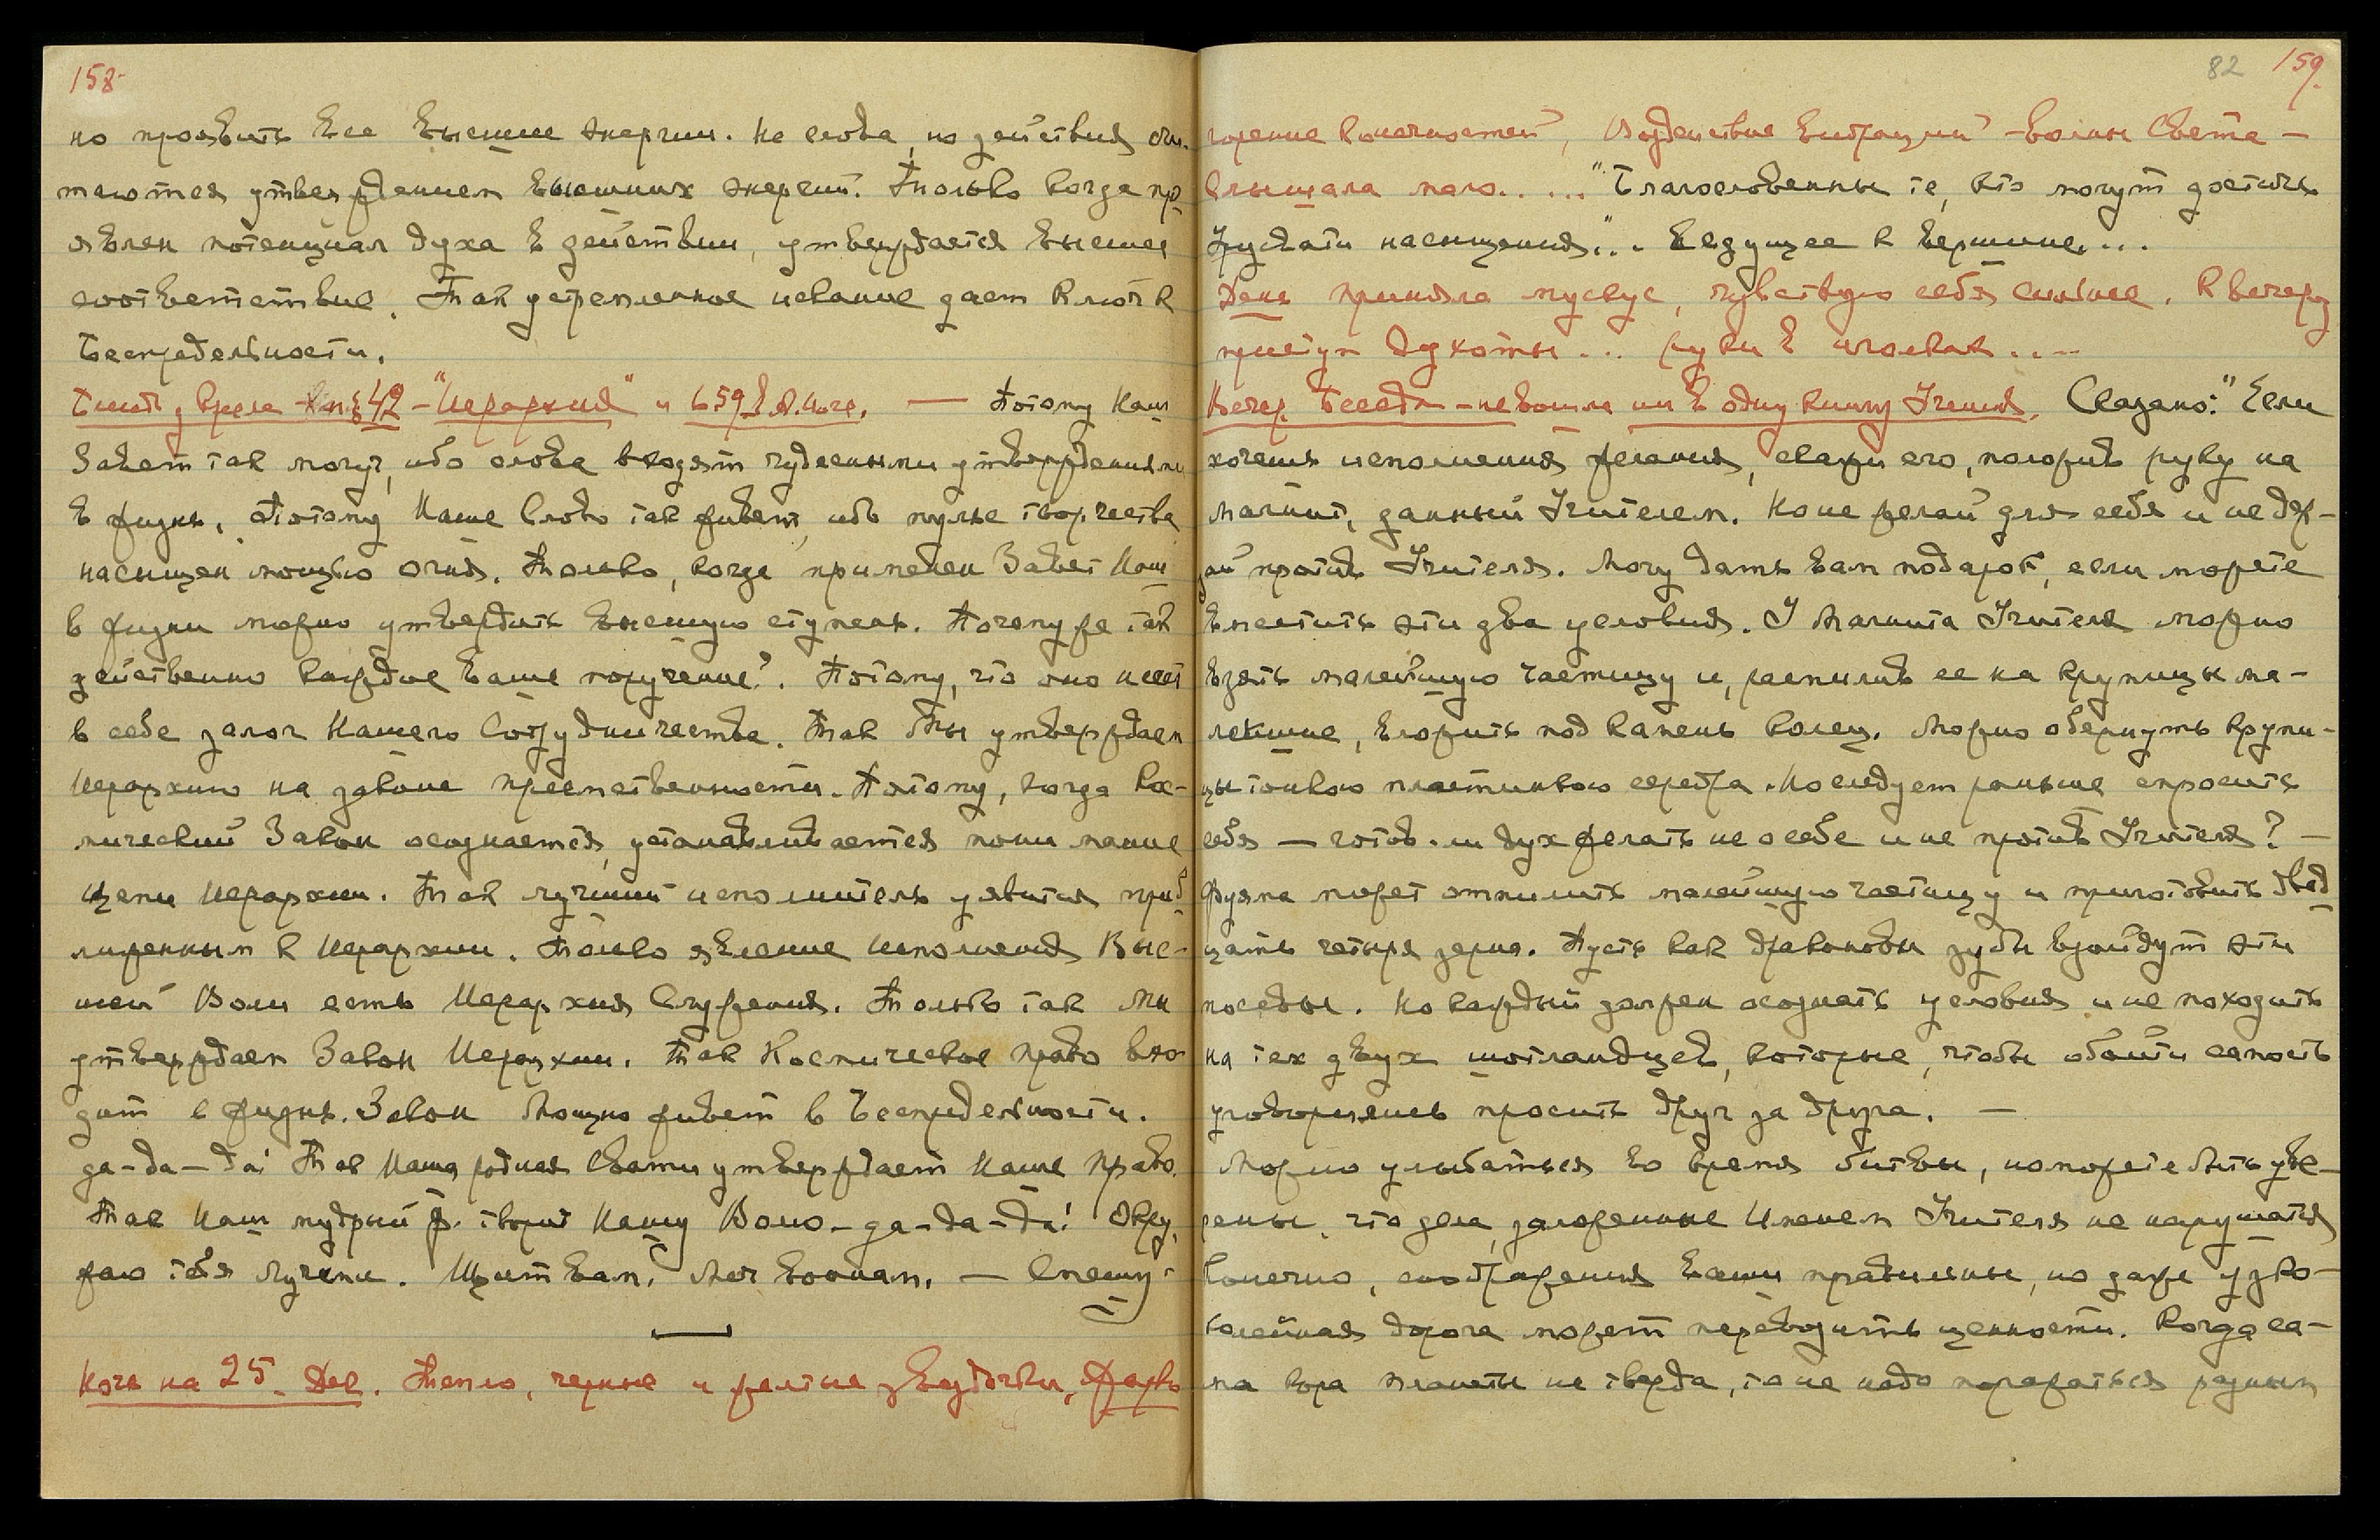 158
но проявить все высшие энергии. Не слова, но действия счи-
таются утверждением высших энергий. Только когда про-
явлен потенциал духа в действии, утверждается высшее
соответствие. Так устремленное искание дает ключ к
Беспредельности.
42 - "Иерархия" и § 59 — Потому Наш
Завет так могуч, ибо слова входят чудесными утверждениями
в жизнь. Потому Наше Слово так живет, ибо пульс творчества
насыщен мощью огня. Только, когда применен Завет Наш
в жизни можно утвердить высшую ступень. Почему же так
действенно каждое Ваше поручение? Потому, что оно несет
в себе залог Нашего Сотрудничества. Так Мы утверждаем
Иерархию на законе преемственности. Потому, когда Кос-
мический Закон осознается, устанавливается понимание
цепи Иерархии. Так лучший исполнитель явится приб-
лиженным к Иерархии. Только явление Исполнения Выс-
шей Воли есть Иерархия Служения. Только так Мы
утверждаем Закон Иерархии. Так Космическое право вхо-
дит в жизнь. Закон Мощно живет в Беспредельности.
Да-да-да! Так Наша родная Свати утверждает Наше Право.
Так Наш мудрый Ф. творит Нашу Волю - да-да-да! Окру-
жаю тебя Лучами. Щит вам. Меч воинам. — Спешу.
Ночь на 25. Дек. Тепло, черные и желтые звездочки,
82 159.
горение конечностей, Воздействие вибраций - волны Света -
Слышала мало..... "Благословенны те, кто могут достичь
насыщения"... Ведущее к вершине....
День приняла мускус, чувствую себя сильнее. К вечеру
приступ духоты... руки в иголках....
Вечер. Беседа - не вошла ни в одну книгу Учения. Сказано: "Если
хочешь исполнения желания, скажи его, положив руку на
Магнит, данный Учителем. Но не желай для себя и не дер-
зай против Учителя. Могу дать вам подарок, если можете
вместить эти два условия. У Магнита Учителя можно
взять малейшую частицу и, распилив ее на крупицы ма-
лейшие, вложить под камень колец. Можно обернуть крупи-
цы тонкою пластинкою серебра. Но следует раньше спросить
себя — готов ли дух желать не о себе и не против Учителя? —
Фуяма может отпилить малейшую частицу и приготовить двад-
цать четыре зерна. Пусть как драконовы зубы взойдут эти
посевы. Но каждый должен осознать условия и не походить
на тех двух шотландцев, которые, чтобы обойти самость
уговорились просить друг за друга. —
Можно улыбаться во время битвы, но можете быть уве-
рены, что дела, заложенные Именем Учителя не нарушатся
Конечно, соображения ваши правильны, но даже узко-
колейная дорога может перевозить ценности. Когда са-
ма кора планеты не тверда, то не надо поражаться разным